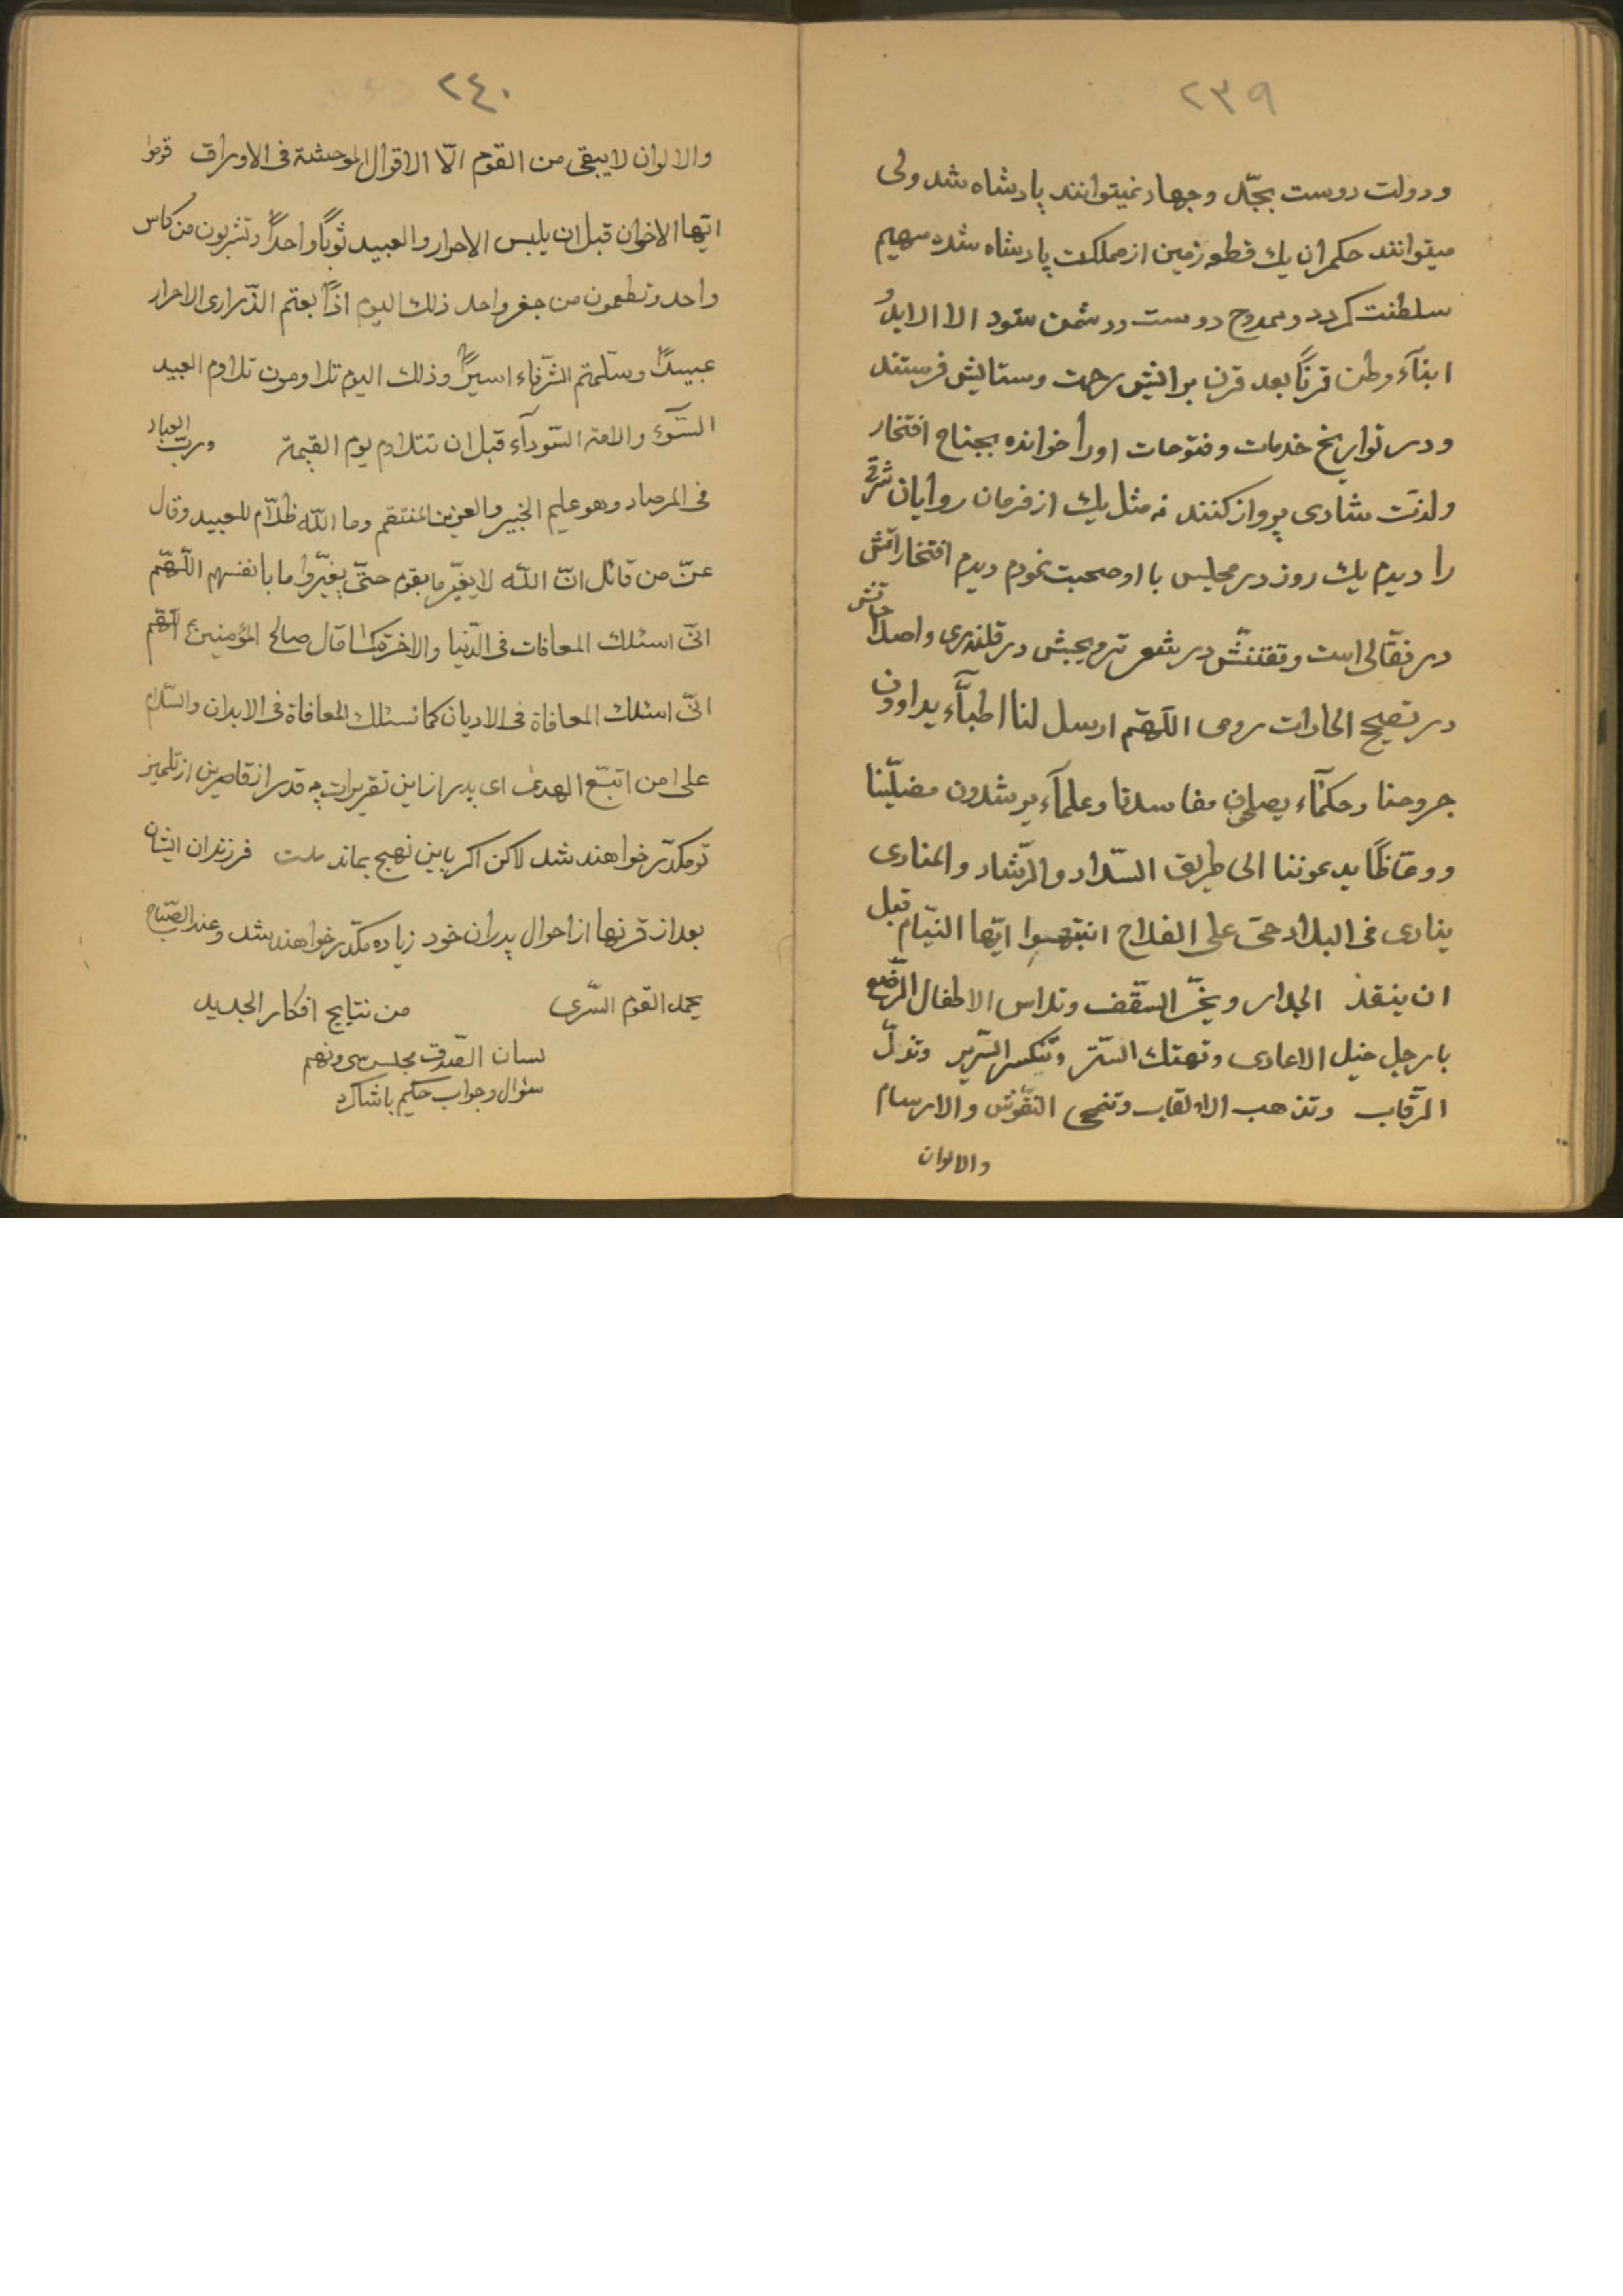 ٢٣٩
و دولت دوست بجدّ و جهاد نمیتوانند پادشاه شد ولی
میتوانند حکمران یک قطعه زمین از مملکت پادشاه شده سهیم
سلطنت گردد و ممدوح دوست و دشمن شود الا الابد و
ابنآء وطن قرناً بعد قرن برایش رحمت و ستایش فرستند
و در تواریخ خدمات و فتوحات او را خوانده بجناح افتخار
و لذت شادی پرواز کنند نه مثل یک از فرمان روایان شرقی
را دیدم یک روز در مجلیس با او صحبت نمودم دیدم افتخاراتش
در نقّالی است و تفننّش در شعر ترویجش در قلندری و اصلاحاتش
در تصیح الحادات رومی اللّهّم ارسل لنا اطبآّء یداوون
جروحنا و حکمآء یصلحون مفاسدنا و علمآء یرشدون مضلّینا
و وعّاظاً یدعوننا الی طریق السّداد و الرّشاد و المنادی
ینادی فی البلاد حیّ علی الفلاح انتبهوا ایّها النیّام قبل
ان ینقذ الجدار و یخرّ السّقف و تداس الاطفال الرّضع
بارجل خیل الاعادی و تهتک السّتر و تنکسر السّریر و تذلّ
الرّقاب و تذهب الالقاب و تنمحی النّقوش و الارسام
والالوان
٢٤٠
والالوان لایبقی من القوم الّا الاقوال الموحشة فی الاوراق قوموا
ایّها الاخوان قبل ان یلبس الاحرار و العبید ثوباً واحداً و تشربون من کاس
واحد و تطعمون من جفر واحد ذلک الیوم اذاً بعتم الذّراری الاحرار
عبیداً و سلّمتم الشّرفاء اسیراً و ذلک الیوم تلاومون تلاوم العبید
السّوء و الامة السّودآء قبل ان تتلاوم یوم القیمة و ربّ العباد
فی المرصاد و هو علیم الخبیر و العزیز المنتقم و ما اللّه ظلّام للعبید و قال
عزّ من قائل انّ اللّه لایغیّر ما بقوم حتّی یغیّروا ما بانفسهم اللّهّم
انّی اسئلک المعافات فی الدّنیا و الاخرة کما قال صالح المؤمنین ع اللّهّم
انّی اسئلک المعافاة فی الادیان کما نسئلک المعافاة فی الابدان والسّلام
علی من اتبّع الهدی ای پدر از این تقریرات چه قدر از قاصرین از تلمیذ
تو مکدّر خواهند شد لاکن اکر باین نهج بماند ملت فرزندان ایشان
بعد از قرنها از احوال پدران خود زیاده مکدّر خواهند شد و عند الصّباح
یحمد القوم السّری من نتایج افکار الجدید
لسان الصّدق مجلس سی و نهم
سئوال و جواب حکیم باشاکرد